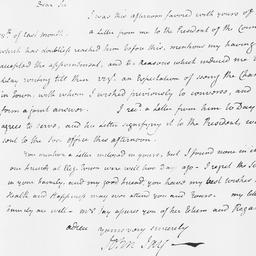 Dear Sir
I was this afternoon favored with yours of
25th of last month. a Letter from me to the President of the Council
which has doubtless reached him before this, mentions my having
accepted the appointment, and the reasons which induced me to
delay writing till then viz. an Expectation of seeing the Chan
in town, with whom I wished previously to converse, and
form a joint answer. I recd a Letter from him to Day
agrees to serve, and his Letter signifying it to the President, we
sent to the post office this afternoon.
You mention a letter enclosed in yours, but I found none in it
our friends at were well few Days ago. I regret the
in your family, and my good friend you have my best wishes
Health and Happiness may ever attend you and yours. my
family are well. Mrs Jay assures you of her Esteem and Regard
adieu yours very sincerely
John Jay